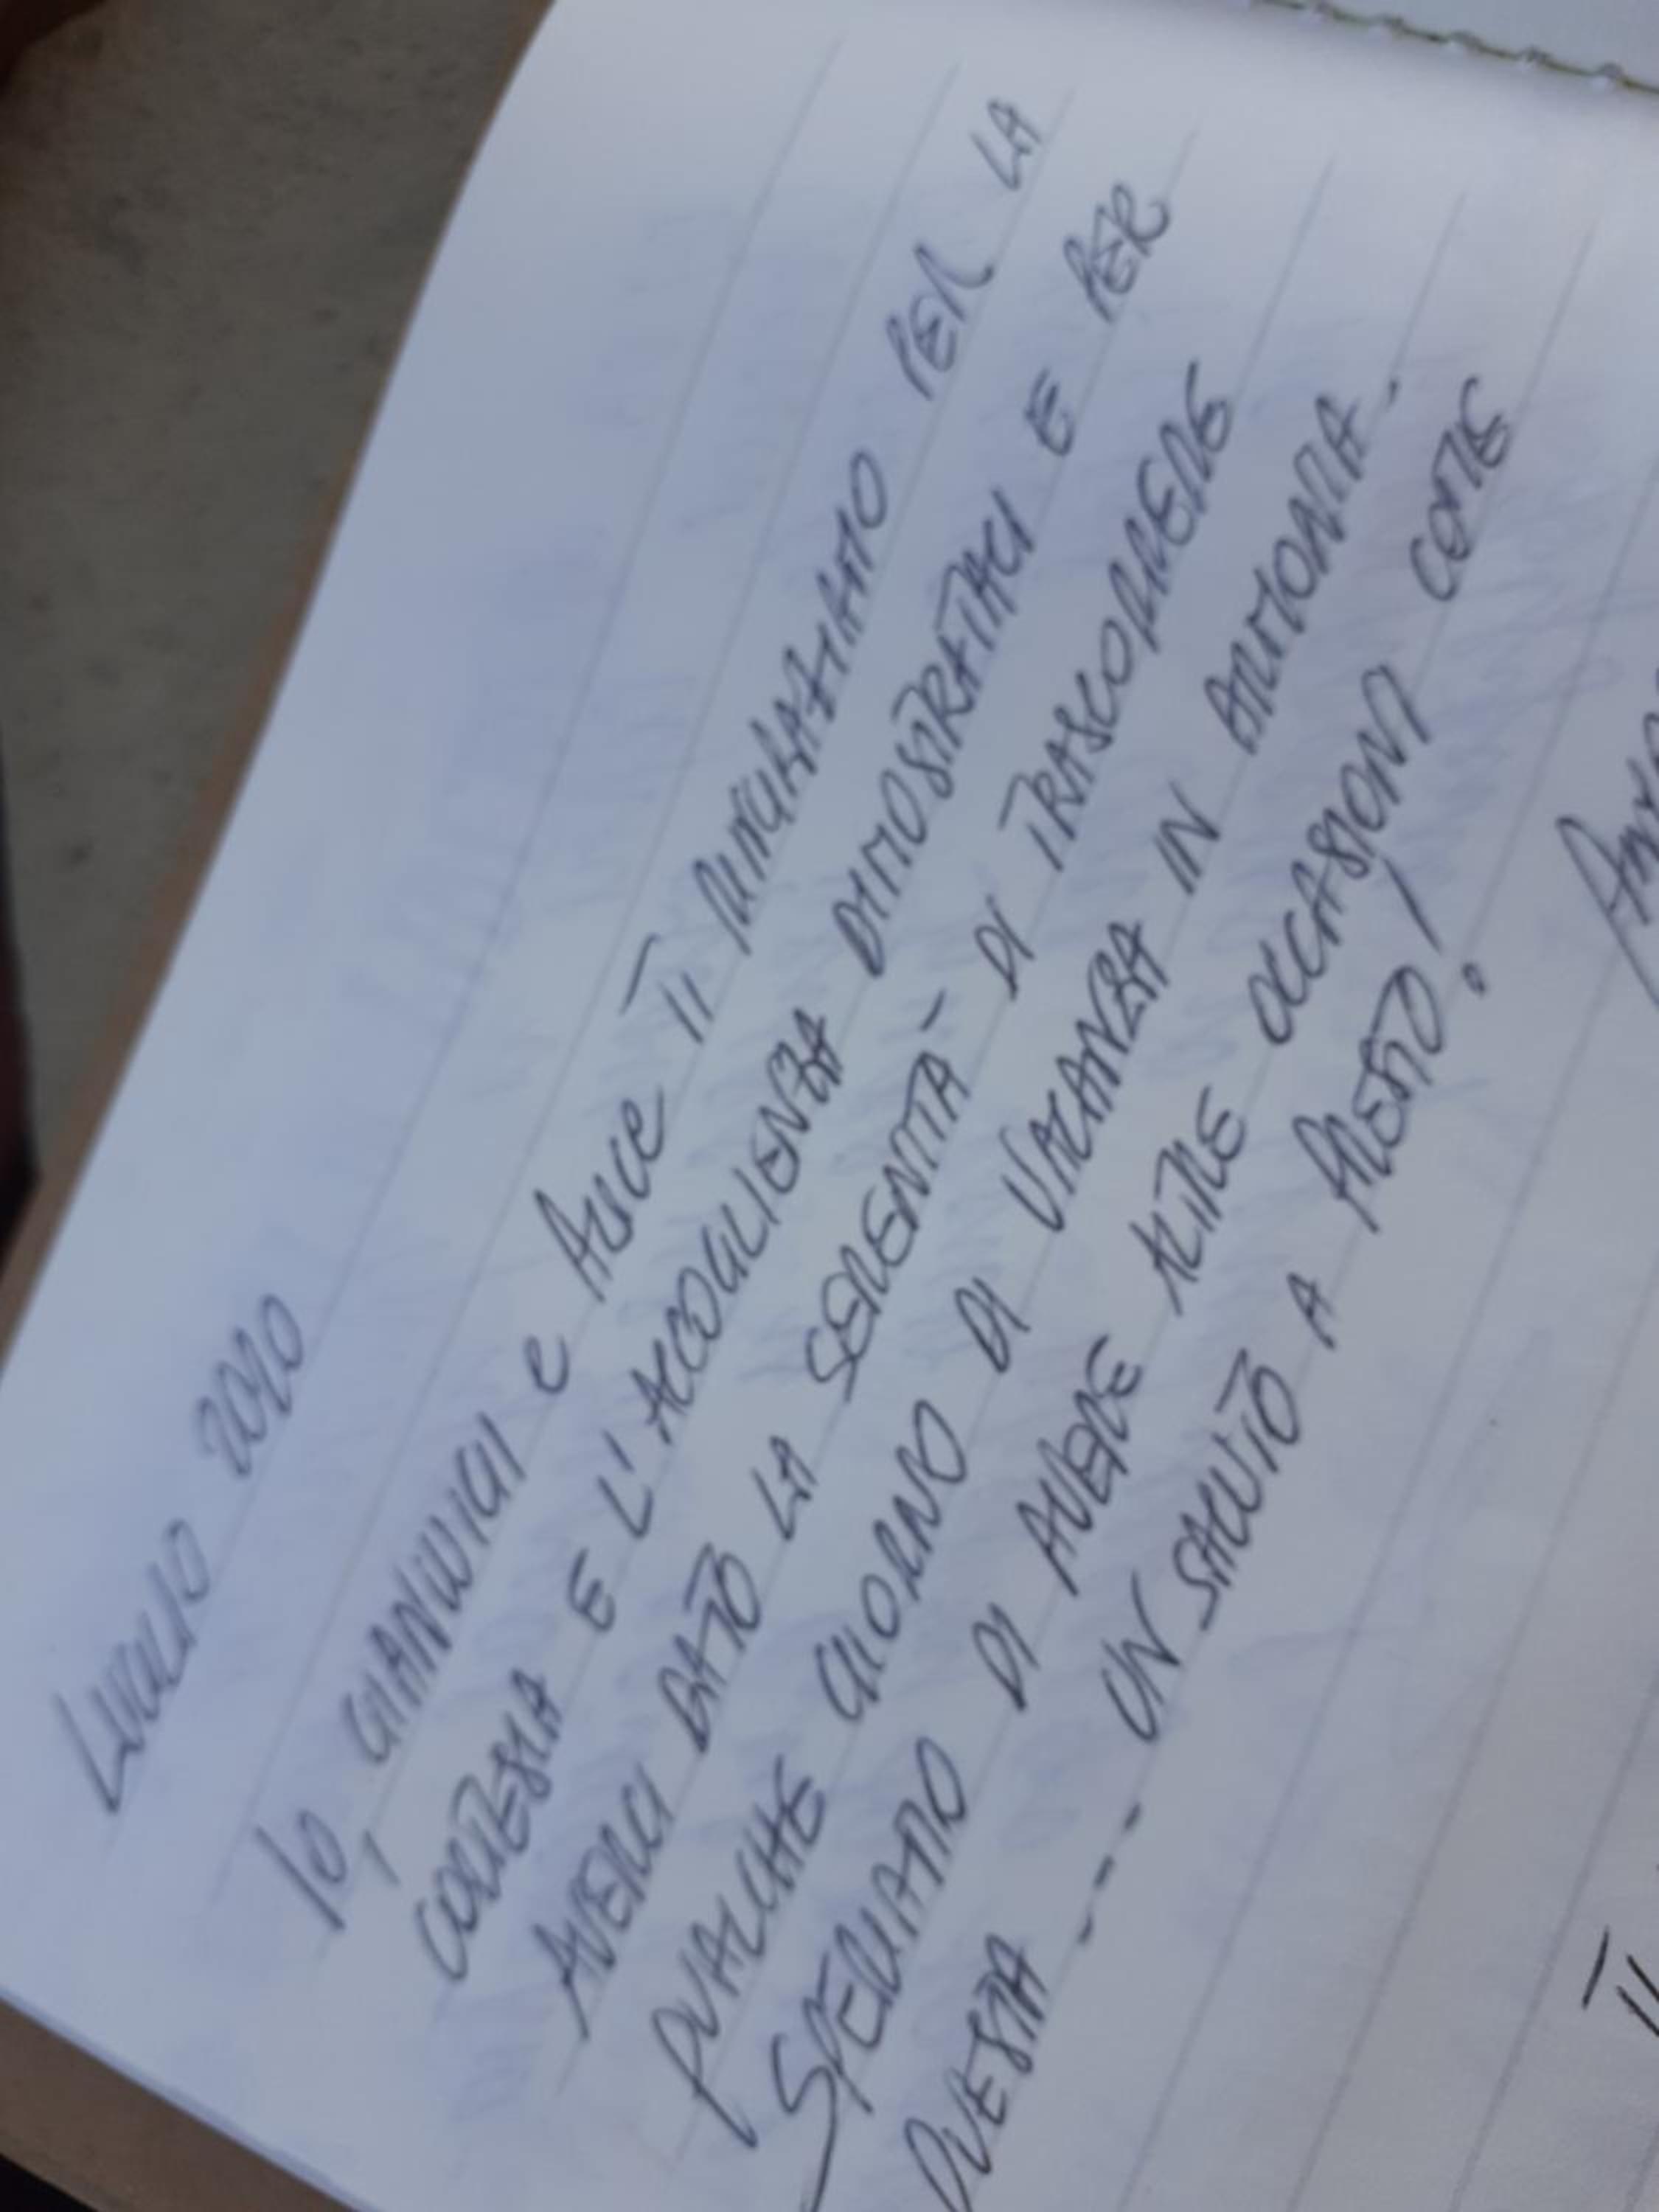 LUGLIO 2020
IO, GIANLUIGI e ALICE TI RINGRAZIAMO PER LA
CORTESIA E L'ACCOGLIENZA DIMOSTRATACI E PER
AVERCI DATO LA SERENITA' DI TRASCORRERE
QUALCHE GIORNO DI VACANZA IN ARMONIA.
SPERIAMO DI AVERE ALTRE OCCASIONI COME
QUESTA --- UN SALUTO A PRESTO!